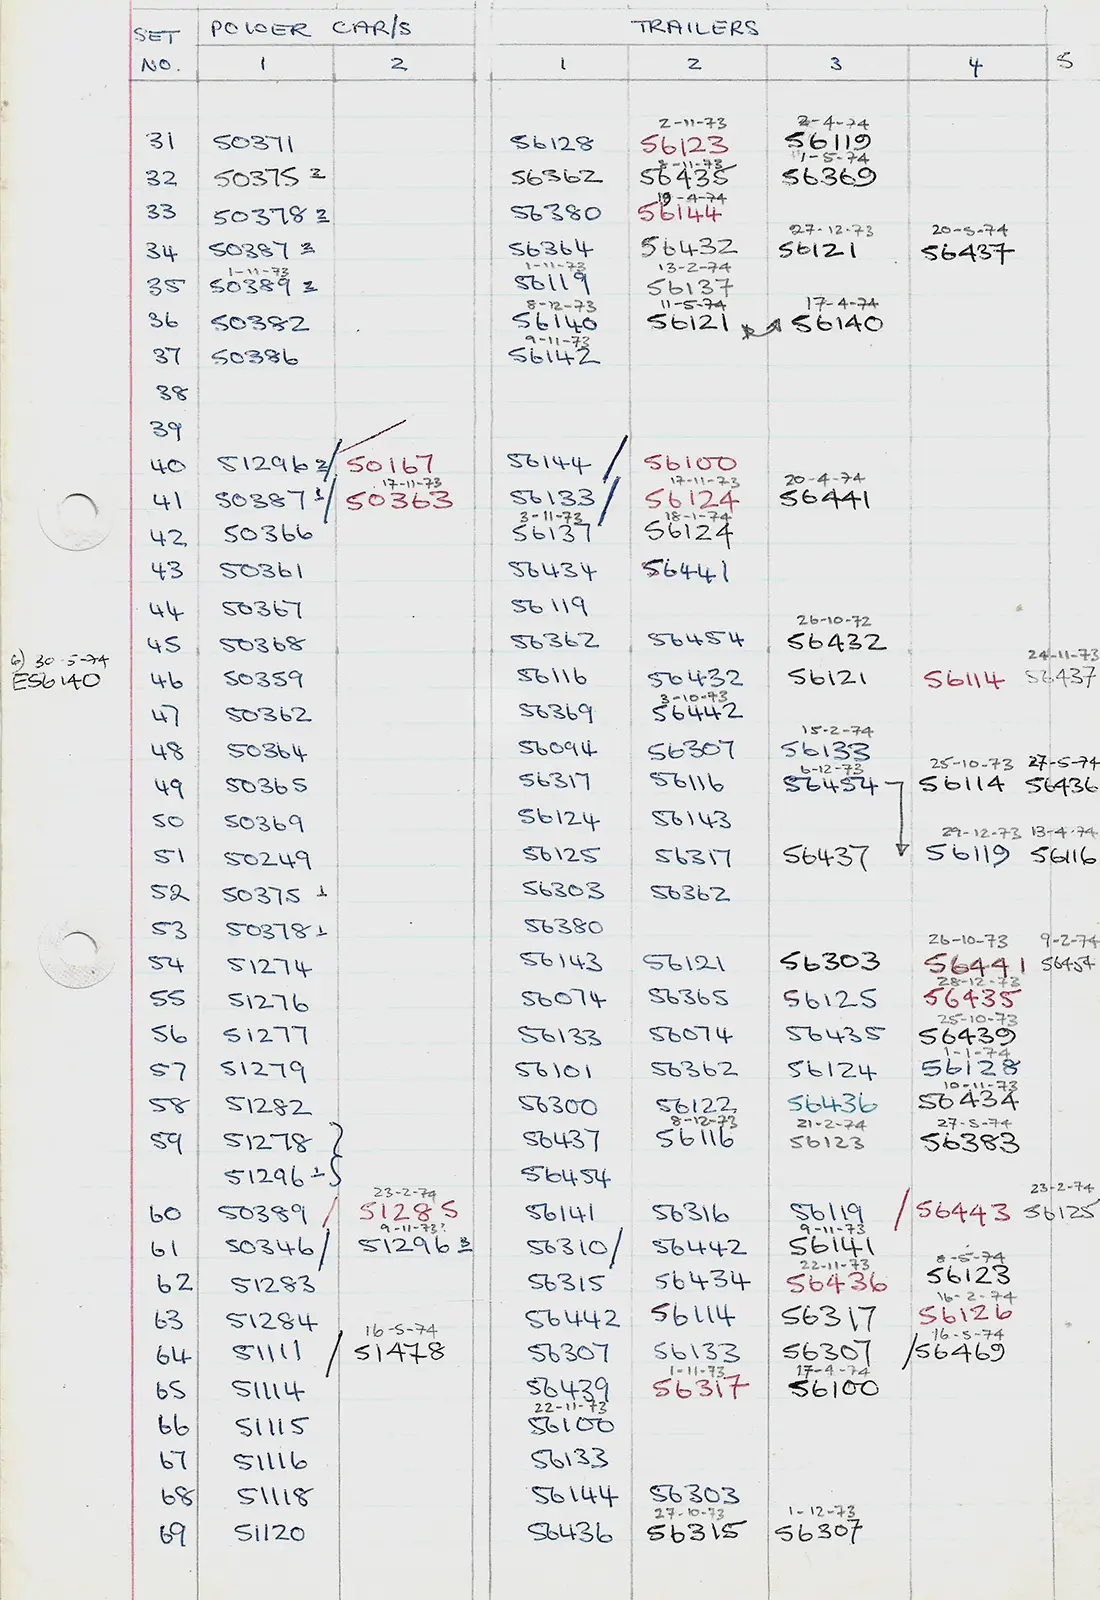 SET POWER CAR/S TRAILERS
NO. 1 2 1 2 3 4 5
2-11-73 2-4-74
31 50371 56128 56123 56119
8-11-73 1-5-74
32 50375 2 56362 56435 56369
19-4-74
33 50378 2 56380 56144
27-12-73 20-5-74
34 50387 2 56364 56432 56121 56437
1-11-73 1-11-73 13-2-74
35 50389 2 56119 56137
8-12-73 11-5-74 17-4-74
36 50382 56140 56121 56140
9-11-73
37 50386 56142
38
39
40 51296 2 / 50167 56144 / 56100
17-11-73 17-11-73 20-4-74
41 50387 1 / 50363 56133 / 56124 56441
3-11-73 18-1-74
42 50366 56137 56124
43 50361 56434 56441
44 50367 56119
26-10-72
45 50368 56362 56454 56432
6) 30-5-74 24-11-73
E56140 46 50359 56116 56432 56121 56114 56437
3-10-73
47 50362 56369 56442
15-2-74
48 50364 56094 56307 56133
6-12-73 25-10-73 27-5-74
49 50365 56317 56116 56454 56114 56436
50 50369 56124 56143
29-12-73 13-4-74
51 50249 56125 56317 56437 56119 56116
52 50375 1 56303 56362
53 50378 1 56380
26-10-73 9-2-74
54 51274 56143 56121 56303 56441 56454
28-12-73
55 51276 56074 56365 56125 56435
25-10-73
56 51277 56133 56074 56435 56439
1-1-74
57 51279 56101 56362 56124 56128
10-11-73
58 51282 56300 56122 56436 56434
8-12-73 21-2-74 27-5-74
59 51278 } 56437 56116 56123 56383
51296 1 } 56454
23-2-74 23-2-74
60 50389 / 51285 56141 56316 56119 / 56443 56125
9-11-73? 9-11-73
61 50346 / 51296 2 56310 / 56442 56141
22-11-73 8-5-74
62 51283 56315 56434 56436 56123
16-2-74
63 51284 56442 56114 56317 56126
16-5-74 16-5-74
64 51111 / 51478 56307 56133 56307 / 56469
1-11-73 17-4-74
65 51114 56439 56317 56100
22-11-73
66 51115 56100
67 51116 56133
68 51118 56144 56303
27-10-73 1-12-73
69 51120 56436 56315 56307